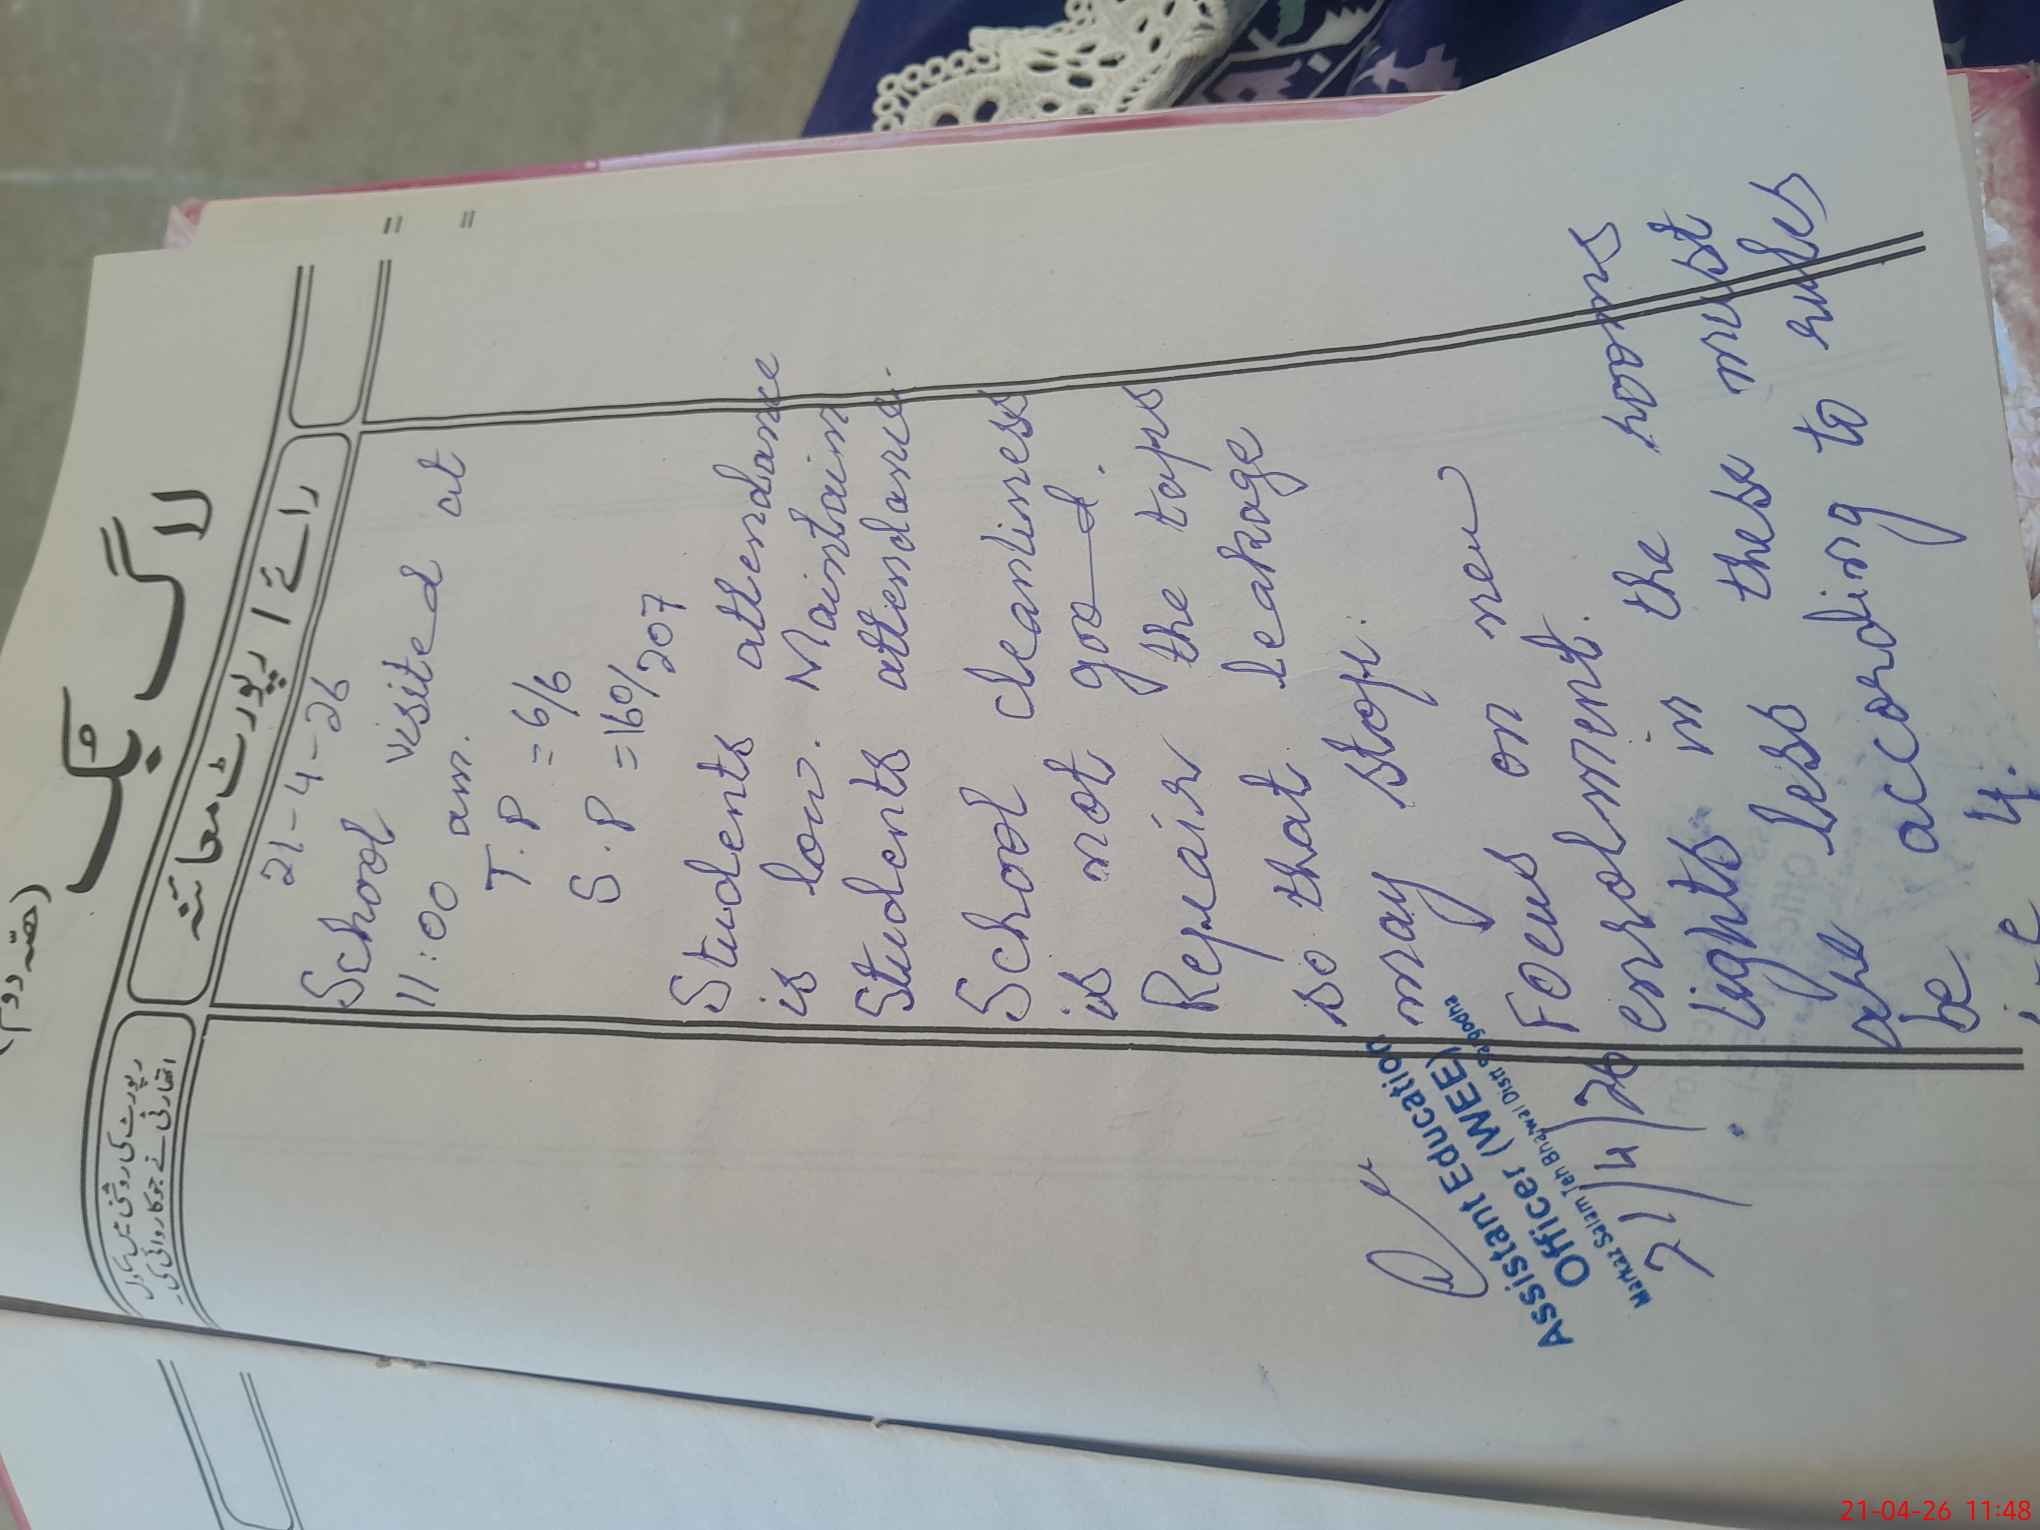 (حصّہ دوم)
لاگ بک
رائے / رپورٹ معائنہ
رپورٹ کی روشنی میں سکول
اتھارٹی نے جو کاروائی کی۔
21-4-26
School visited at
11:00 am.
T.P = 6/6
S.P = 160/207
Students attendance
is low. Maintain
students attendance.
School cleanliness
is not good.
Repair the taps
so that leakage
may stop.
Focus on new
enrolment.
lights in the rooms
are less these must
be according to rules
Assistant Education
Officer (WEE)
Markaz Salam Teh Bhalwal Distt Sargodha
21/4/26
21-04-26 11:48